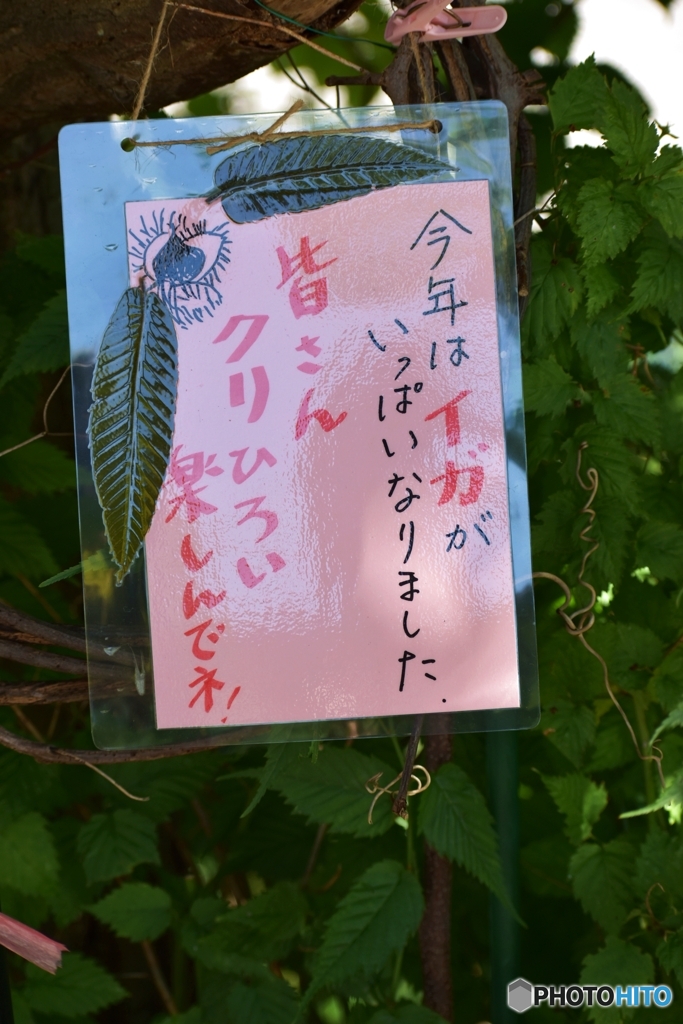 今年はイガが
いっぱいなりました.
皆さん
クリひろい
楽しんでネ!
PHOTOHITO